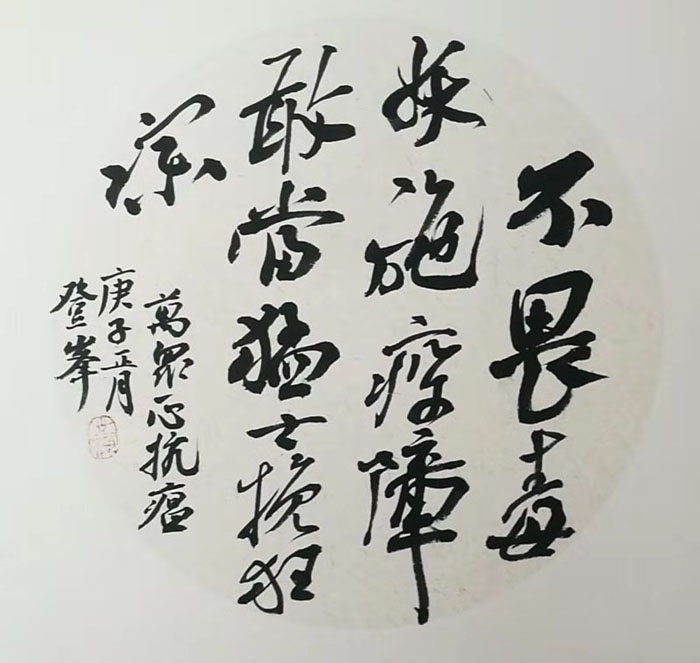 不畏毒
妖施疫障
敢當猛士挽狂
瀾
萬眾一心抗瘟
庚子正月
登峯